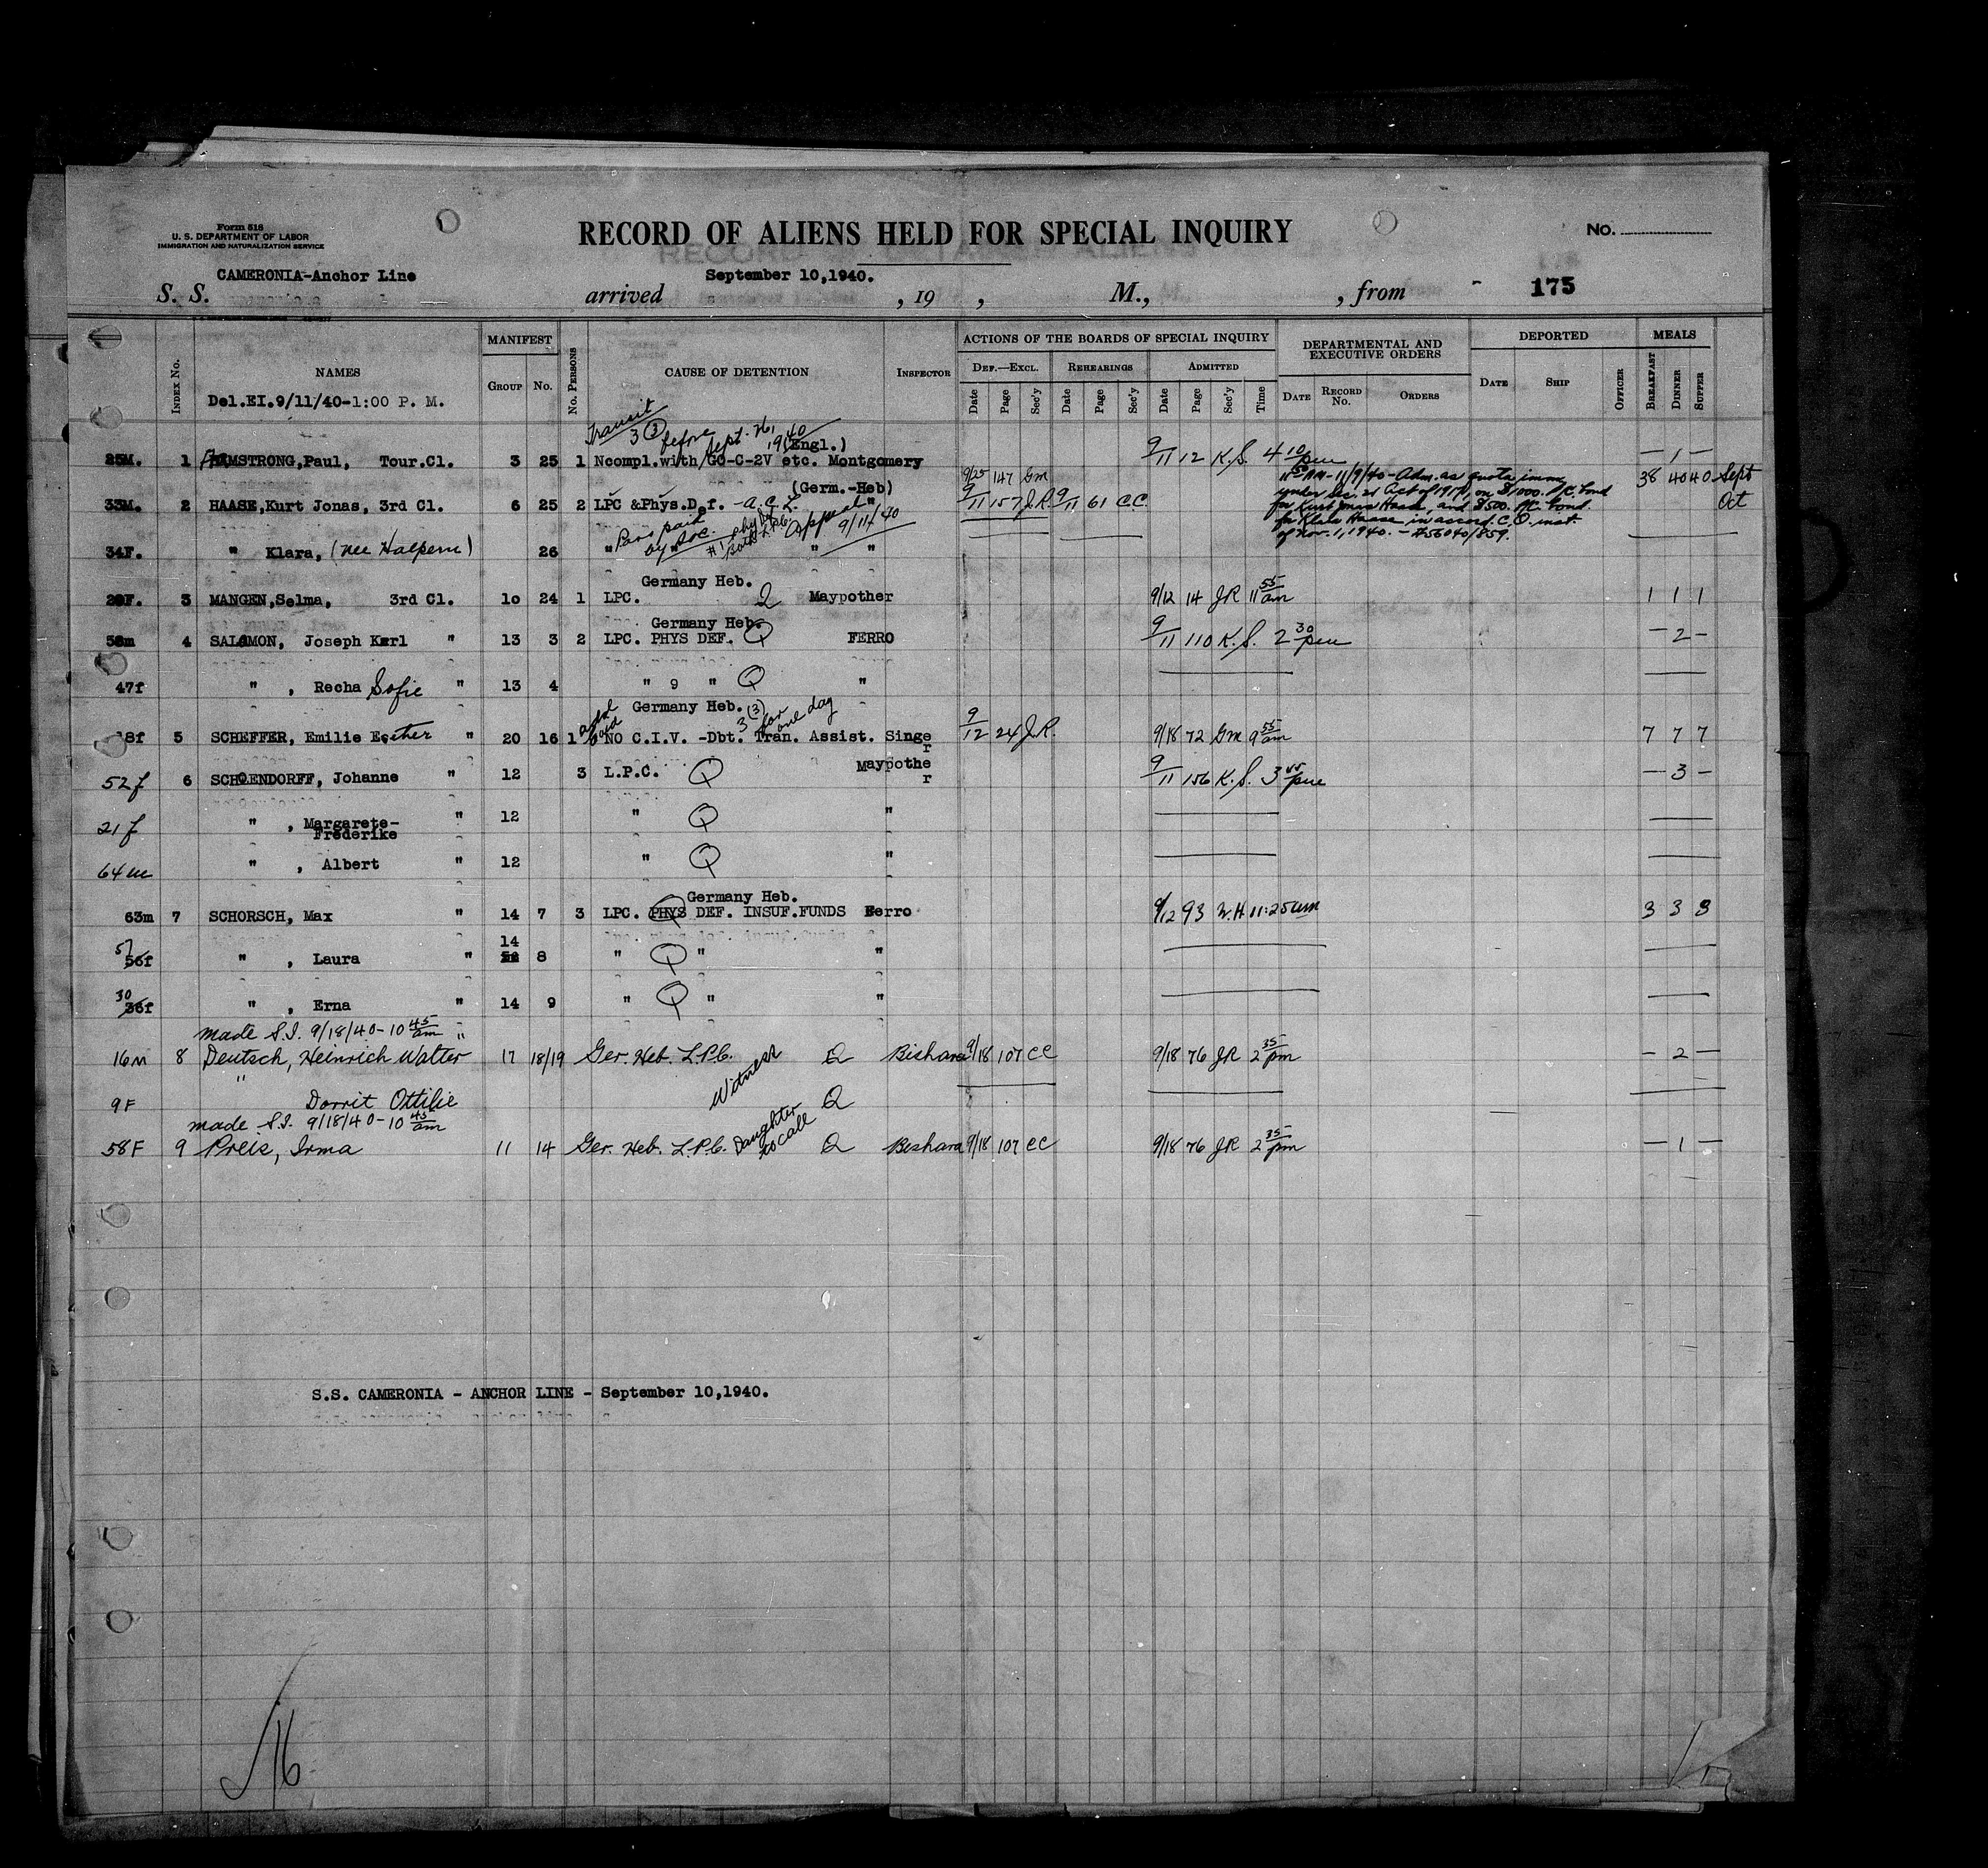 Form 518
U. S. DEPARTMENT OF LABOR
IMMIGRATION AND NATURALIZATION SERVICE
RECORD OF ALIENS HELD FOR SPECIAL INQUIRY
No.
CAMERONIA-Anchor Line
September 10,1940.
S. S. arrived , 19 , M., , from - 175
Index No.
NAMES
MANIFEST
Group No.
No. Persons
CAUSE OF DETENTION
Inspector
ACTIONS OF THE BOARDS OF SPECIAL INQUIRY
Def.—Excl. Rehearings Admitted
Date Page Sec'y Date Page Sec'y Date Page Sec'y Time
DEPARTMENTAL AND
EXECUTIVE ORDERS
Date Record No. Orders
DEPORTED
Date Ship Officer
MEALS
Breakfast Dinner Supper
Del.EI.9/11/40-1:00 P. M.
Transit
3 (3) before Sept. 26, 1940
(Engl.)
25M. 1 ARMSTRONG,Paul, Tour.Cl. 3 25 1 Ncompl.with GO-C-2V etc. Montgomery 9/11 12 K.S. 4 10 pm — 1 —
(Germ.-Heb) 9/25 147 GM
33M. 2 HAASE,Kurt Jonas, 3rd Cl. 6 25 2 LPC &Phys.Def. -a.c.L. " 9/11 157 J.R. 9/11 61 C.C. 38 40 40 Sept
Oct
AM-11/9/40-Adm. as quota imm.
under Sec. 21 Act of 1917, on $1000. P.C. bond
for Kurt Jonas Haase, and $500. P.C. bond
for Klara Haase in accord. C.O. inst.
of Nov. 1, 1940. - #56040/859.
Pass paid
by Soc.
#1 phy Def
Both LPC
Appeal
9/11/40
34F. " Klara, (nee Halpern) 26 " " " "
Germany Heb.
29F. 3 MANGEN,Selma, 3rd Cl. 10 24 1 LPC. Q Maypother 9/12 14 JR 11 55 am 1 1 1
Germany Heb.
58m 4 SALOMON, Joseph Karl " 13 3 2 LPC. PHYS DEF. Q FERRO 9/11 110 K.S. 2 30 pm — 2 —
47f " , Recha Sofie " 13 4 " 9 " Q "
Germany Heb. (3)
3 for one day
18f 5 SCHEFFER, Emilie Esther " 20 16 1 NO C.I.V. -Dbt. Tran. Assist. Singer 9/12 24 J.R. 9/18 72 GM 9 55 am 7 7 7
52f 6 SCHOENDORFF, Johanne " 12 3 L.P.C. Q Maypother 9/11 156 K.S. 3 45 pm — 3 —
21f " , Margarete- " 12 " Q "
Frederike
64m " , Albert " 12 " Q "
Germany Heb.
63m 7 SCHORSCH, Max " 14 7 3 LPC. PHYS DEF. INSUF.FUNDS Ferro 9/12 93 W.H. 11:25 am 3 3 3
57 56f " , Laura " 14 8 " Q " "
30 36f " , Erna " 14 9 " Q " "
made S.I. 9/18/40-10 45 am "
16m 8 Deutsch, Heinrich Walter 17 18/19 Ger. Heb. L.P.C. Witness Q Bishara 9/18 107 CC 9/18 76 JR 2 35 pm — 2 —
9F " Dorrit Ottilie Q
made S.I. 9/18/40-10 45 am
58F 9 Preis, Irma 11 14 Ger. Heb. L.P.C. Daughter to call Q Bishara 9/18 107 CC 9/18 76 JR 2 35 pm — 1 —
S.S. CAMERONIA - ANCHOR LINE - September 10,1940.